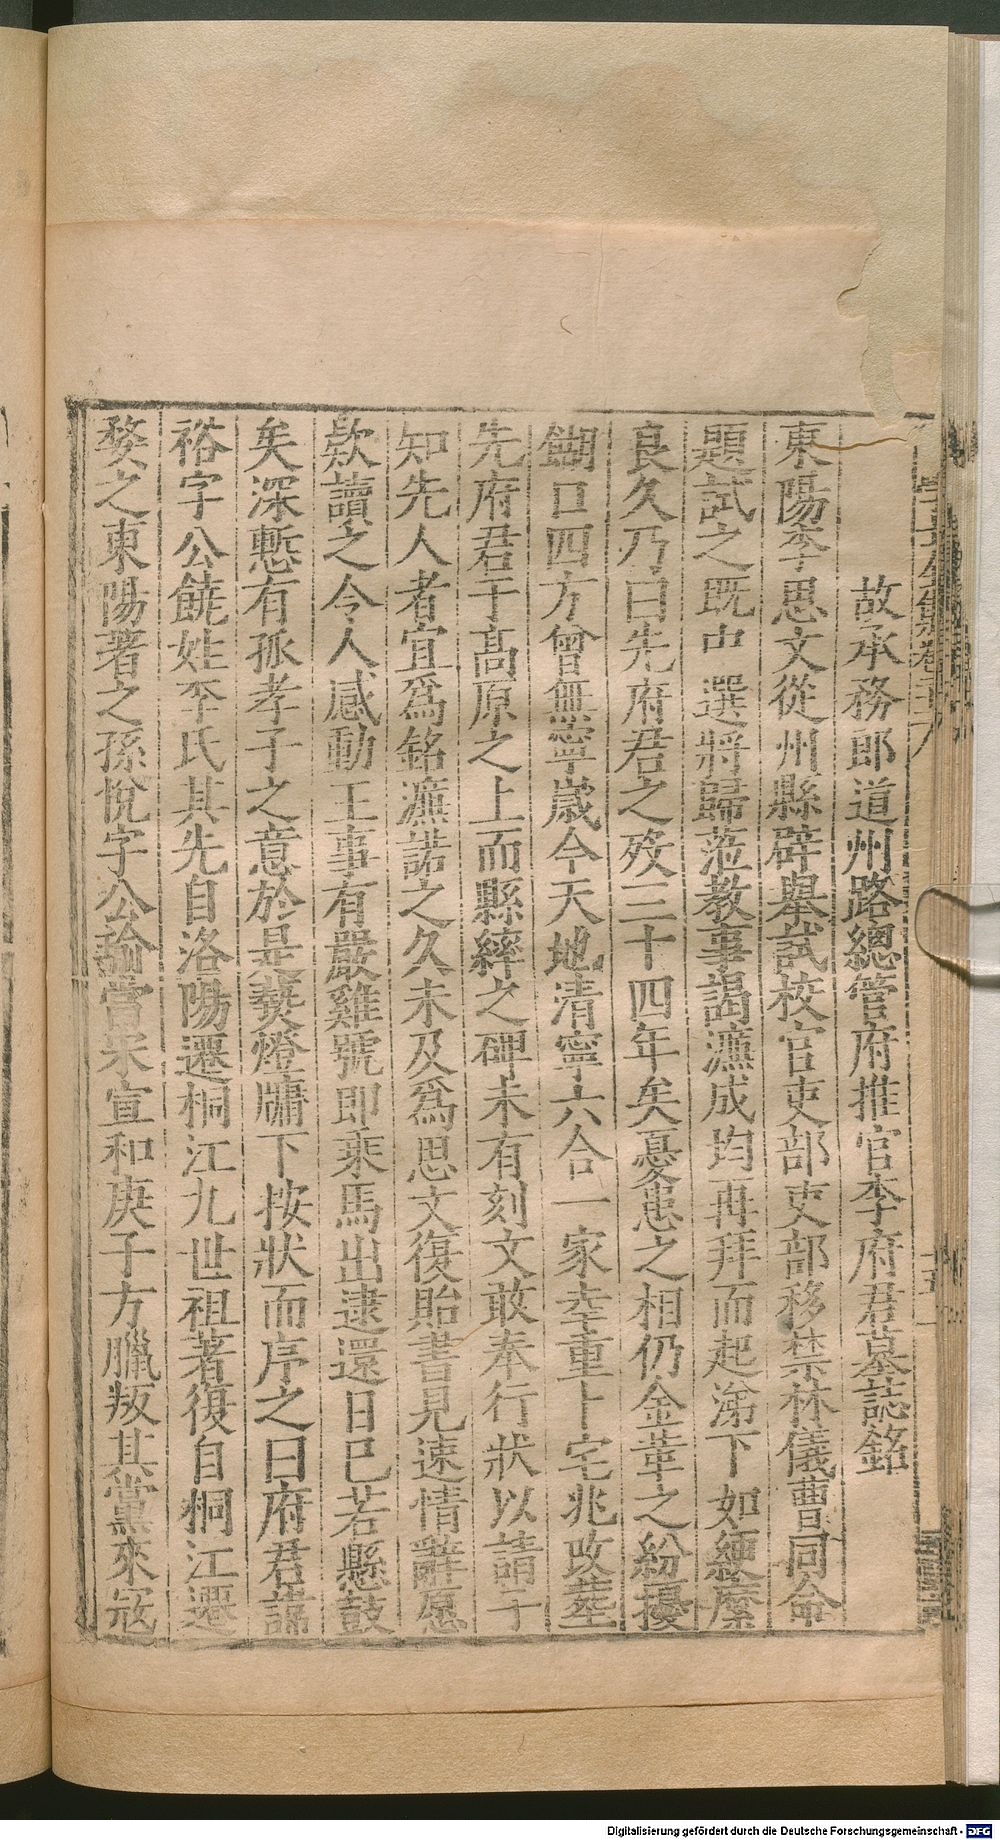 故承務郎道州路總管府推官李府君墓誌銘
東陽李思文從州縣辟舉試校官吏部吏部移禁林儀曹同命
題試之既中選將歸蒞教事謁濂成均再拜而起涕下如綆縻
良久乃曰先府君之歿三十四年矣憂患之相仍金革之紛擾
餬口四方曾無寧歲今天地清寧六合一家幸重卜宅兆改葬
先府君于髙原之上而縣繂之碑未有刻文敢奉行狀以請于
知先人者宜爲銘濂諾之久未及爲思文復貽書見速情辭愿
欵讀之令人感動王事有嚴雞號即乘馬出逮還日已若縣鼓
矣深慙有孤孝子之意於是爇燈牗下按狀而序之曰府君諱
裕字公饒姓李氏其先自洛陽遷桐江九世祖著復自桐江遷
婺之東陽著之孫悅字公綸當宋宣和庚子方臘叛其黨來寇
Digitalisierung gefördert durch die Deutsche Forschungsgemeinschaft - DFG